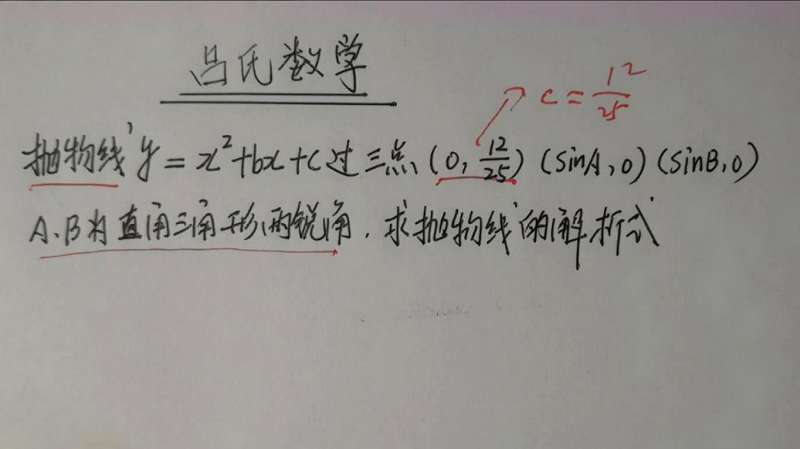 吕氏数学
c=12/25
抛物线y=x²+bx+c过三点(0,12/25)(sinA,0)(sinB,0)
A、B为直角三角形两锐角.求抛物线的解析式